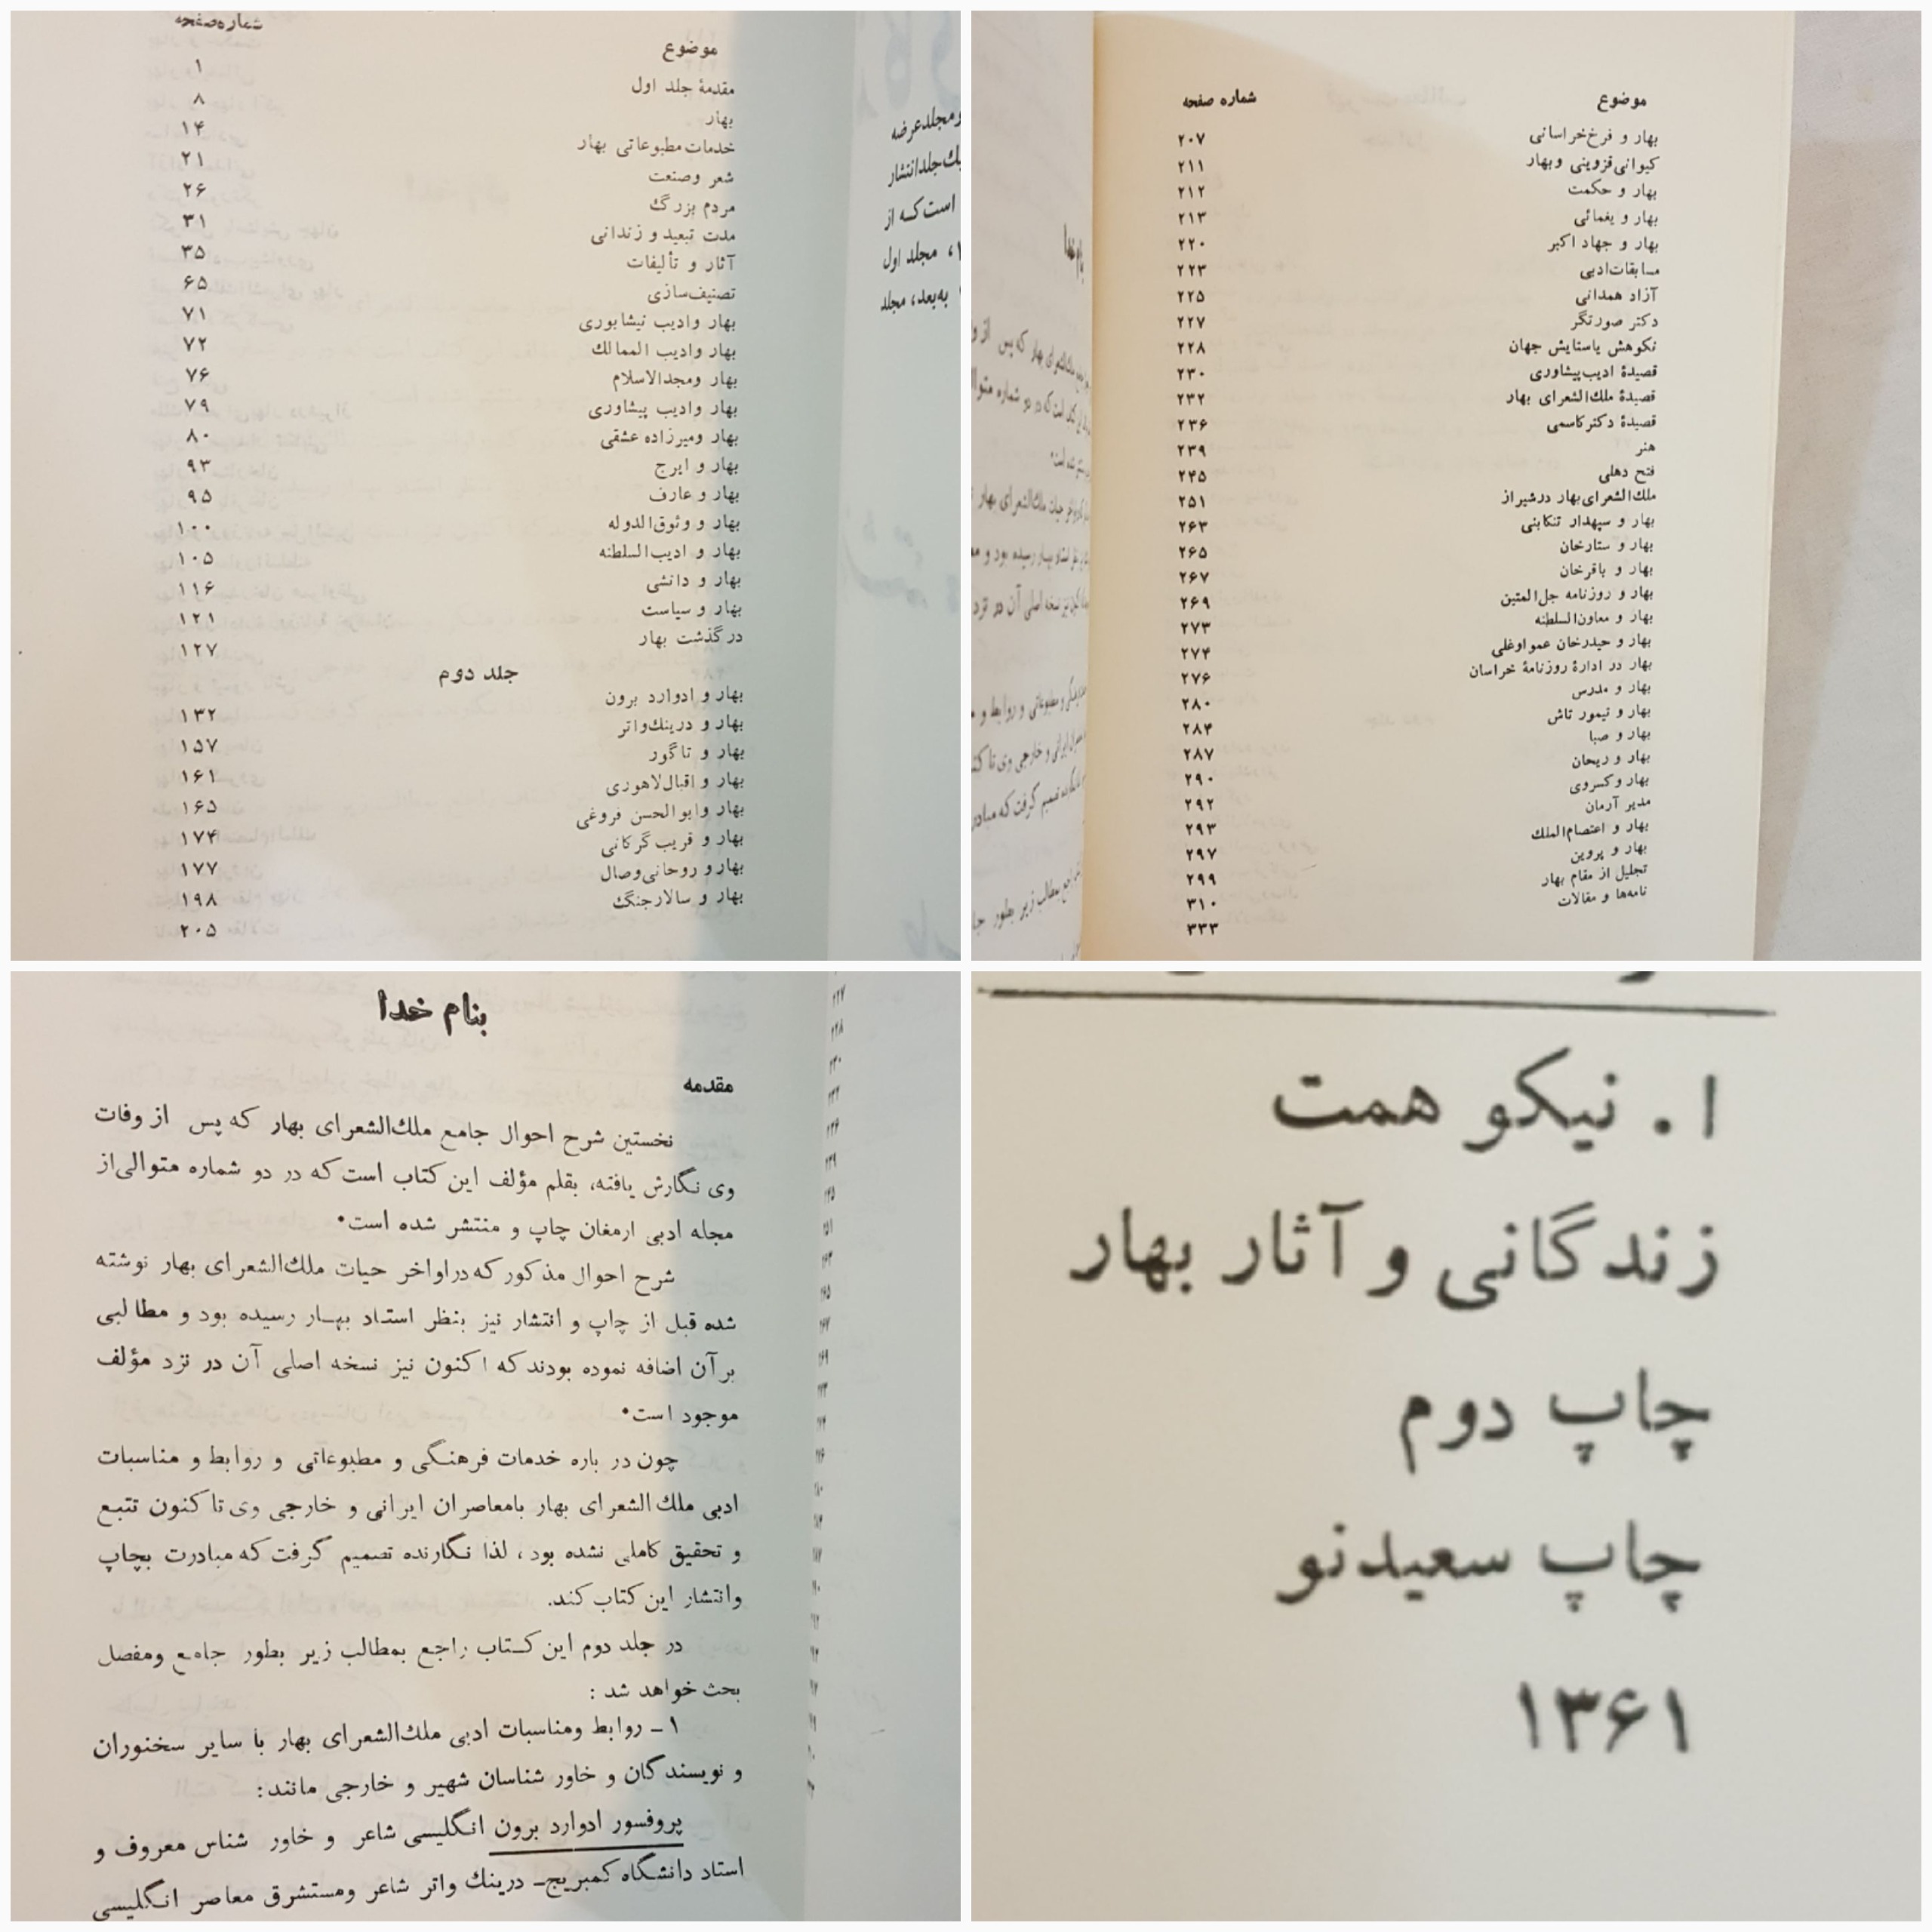 موضوع شماره‌صفحه
مقدمهٔ جلد اول ۱
بهار ۸
خدمات مطبوعاتی بهار ۱۴
شعر وصنعت ۲۱
مردم بزرگ ۲۶
مدت تبعید و زندانی ۳۱
آثار و تألیفات ۳۵
تصنیف‌سازی ۶۵
بهار وادیب نیشابوری ۷۱
بهار وادیب الممالك ۷۲
بهار ومجدالاسلام ۷۶
بهار وادیب پیشاوری ۷۹
بهار ومیرزاده عشقی ۸۰
بهار و ایرج ۹۳
بهار و عارف ۹۵
بهار و وثوق‌الدوله ۱۰۰
بهار و ادیب‌السلطنه ۱۰۵
بهار و دانشی ۱۱۶
بهار و سیاست ۱۲۱
درگذشت بهار ۱۲۷
جلد دوم
بهار و ادوارد برون ۱۳۲
بهار و درینك‌واتر ۱۵۷
بهار و تاگور ۱۶۱
بهار و اقبال‌لاهوری ۱۶۵
بهار وابوالحسن فروغی ۱۷۴
بهار و قریب گرکانی ۱۷۷
بهار و روحانی‌وصال ۱۹۸
بهار و سالارجنگ ۲۰۵
ومجلدعرضه
یك‌جلدانتشار
است‌که از
، مجلد اول
به‌بعد، مجلد
موضوع شماره صفحه
بهار و فرخ‌خراسانی ۲۰۷
کیوانی‌قزوینی وبهار ۲۱۱
بهار و حکمت ۲۱۲
بهار و یغمائی ۲۱۳
بهار و جهاد اکبر ۲۲۰
مسابقات‌ادبی ۲۲۳
آزاد همدانی ۲۲۵
دکتر صورتگر ۲۲۷
نکوهش یاستایش جهان ۲۲۸
قصیدهٔ ادیب‌پیشاوری ۲۳۰
قصیدهٔ ملك‌الشعرای بهار ۲۳۲
قصیدهٔ دکترکاسمی ۲۳۶
هنر ۲۳۹
فتح دهلی ۲۴۵
ملك‌الشعرای‌بهار درشیراز ۲۵۱
بهار و سپهدار تنکابنی ۲۶۳
بهار و ستارخان ۲۶۵
بهار و باقرخان ۲۶۷
بهار و روزنامه حبل‌المتین ۲۶۹
بهار و معاون‌السلطنه ۲۷۳
بهار و حیدرخان عمواوغلی ۲۷۴
بهار در ادارهٔ روزنامهٔ خراسان ۲۷۶
بهار و مدرس ۲۸۰
بهار و تیمور تاش ۲۸۴
بهار و صبا ۲۸۷
بهار و ریحان ۲۹۰
بهار وکسروی ۲۹۲
مدیر آرمان ۲۹۳
بهار و اعتصام‌الملك ۲۹۷
بهار و پروین ۲۹۹
تجلیل از مقام بهار ۳۱۰
نامه‌ها و مقالات ۳۳۳
بنام خدا
مقدمه
نخستین شرح احوال جامع ملك‌الشعرای بهار که پس از وفات
وی نگارش یافته، بقلم مؤلف این کتاب است که در دو شماره متوالی‌از
مجله ادبی ارمغان چاپ و منتشر شده است.
شرح احوال مذکور که‌دراواخر حیات ملك‌الشعرای بهار نوشته
شده قبل از چاپ و انتشار نیز بنظر استاد بهار رسیده بود و مطالبی
بر آن اضافه نموده بودند که اکنون نیز نسخه اصلی آن در نزد مؤلف
موجود است.
چون در باره خدمات فرهنگی و مطبوعاتی و روابط و مناسبات
ادبی ملك الشعرای بهار بامعاصران ایرانی و خارجی وی تاکنون تتبع
و تحقیق کاملی نشده بود، لذا نگارنده تصمیم گرفت که مبادرت بچاپ
وانتشار این کتاب کند.
در جلد دوم این کتاب راجع بمطالب زیر بطور جامع ومفصل
بحث خواهد شد :
۱ـ روابط ومناسبات ادبی ملك‌الشعرای بهار با سایر سخنوران
و نویسندگان و خاور شناسان شهیر و خارجی مانند:
پروفسور ادوارد برون انگلیسی شاعر و خاور شناس معروف و
استاد دانشگاه کمبریج‌ـ درینك واتر شاعر ومستشرق معاصر انگلیسی
ا. نیکو همت
زندگانی و آثار بهار
چاپ دوم
چاپ سعیدنو
۱۳۶۱